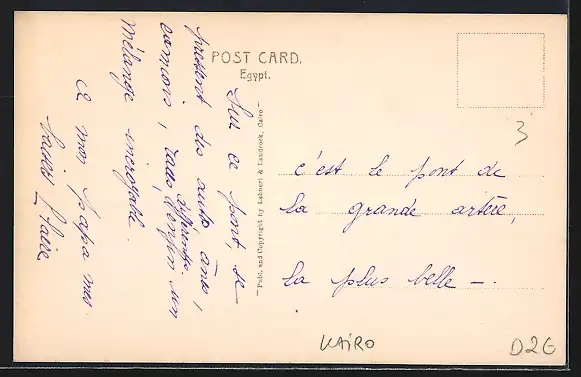 POST CARD.
Egypt.
Sur ce pont, se
pressent des autos, ânes,
camions, taxis, enfin un
différents
mélange incroyable.
à mon papa mes
— Publ. and Copyright by Lehnert & Landrock, Cairo —
c'est le pont de
la grande artère,
la plus belle —.
3
KAIRO
D26